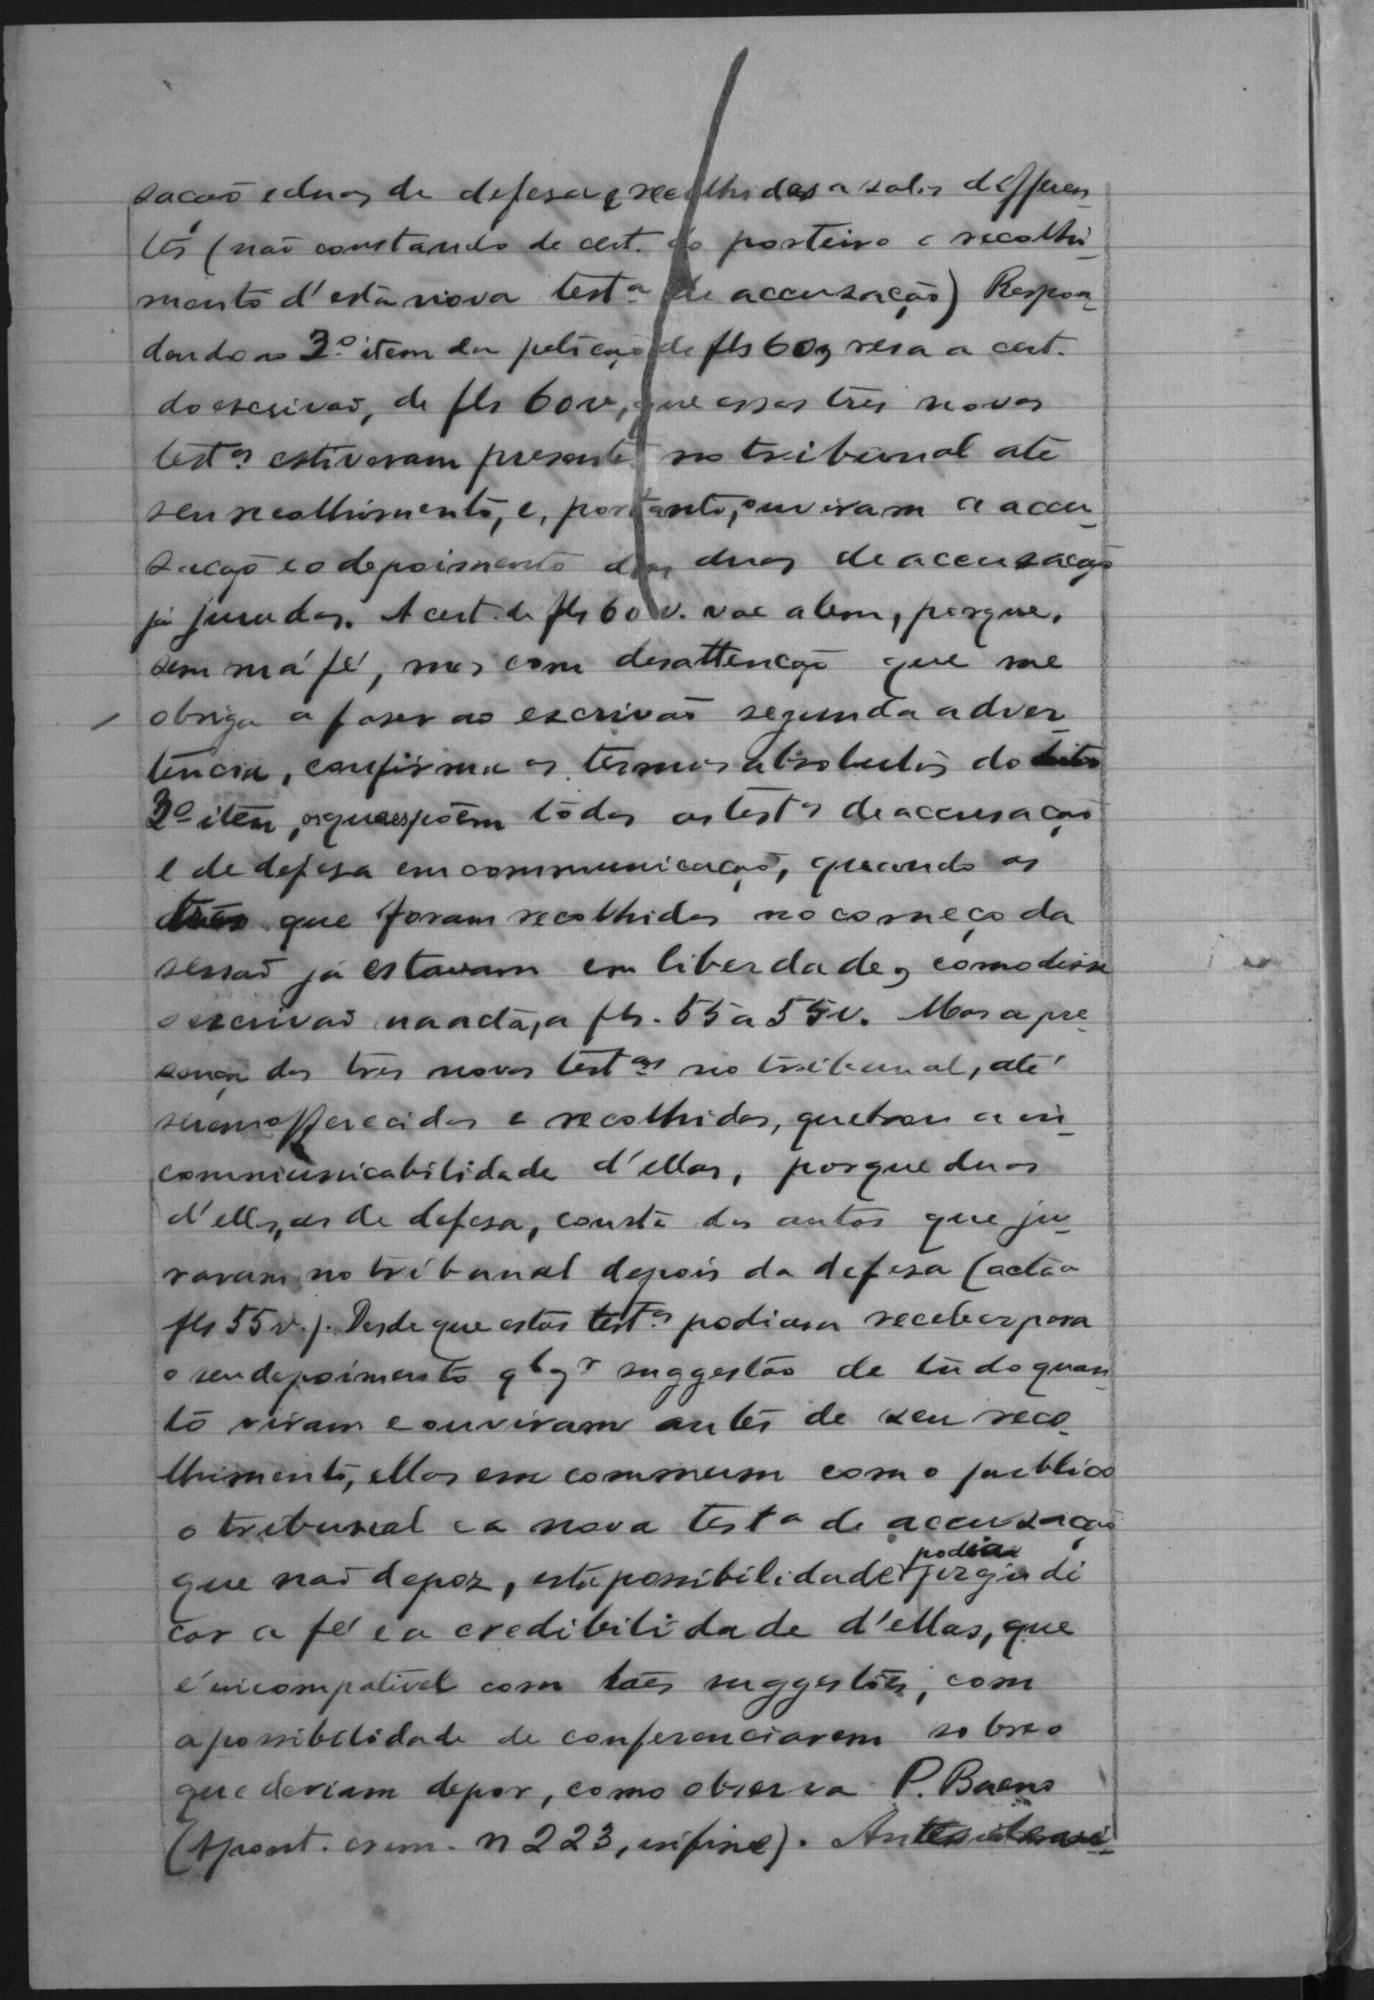 sação e duas de defesa, recolhidas a salas differen-
tes (não constando de cert. do porteiro o recolhi-
mento d'esta nova test.a de accusação) Respon-
dendo ao 3.o item da petição de fls 60, resa a cert.
do escrivão, de fls 60v, que essas três novas
test.as estiveram presentes no tribunal até
seu recolhimento, e, portanto, ouviram a accu-
sação e o depoimento das duas de accusação
já juradas. A cert. de fls 60v. vae alem, porque,
sem má fé, mas com desattenção que me
obriga a faser ao escrivão segunda adver-
tência, confirma os termos absolutos do dito
3.o item, os quaes põem todas as test.as de accusação
e de defesa em communicação, quando as
três que foram recolhidas no começo da
sessão já estavam em liberdade, como disse
o escrivão na acta, a fls. 55 a 55v. Mas a pre-
sença das tres novas test.as no tribunal, até
serem offerecidas e recolhidas, quebrou a in-
communicabilidade d'ellas, porque duas
d'ellas, as de defesa, consta dos autos que ju-
raram no tribunal depois da defesa (acta a
fls 55v.). Desde que estas test.as podiam receber para
o seu depoimento qlqr suggestão de tudo quan-
to viram e ouviram antes de seu reco-
lhimento, ellas em commum com o publico
o tribunal e a nova test.a de accusação
que não depoz, esta possibilidade podia prejudi
car a fé e a credibilidade d'ellas, que
é incompativel com taes suggestões, com
a possibilidade de conferenciarem sobre o
que deviam depor, como observa P. Bueno
(Apont. crim. n 223, in fine).